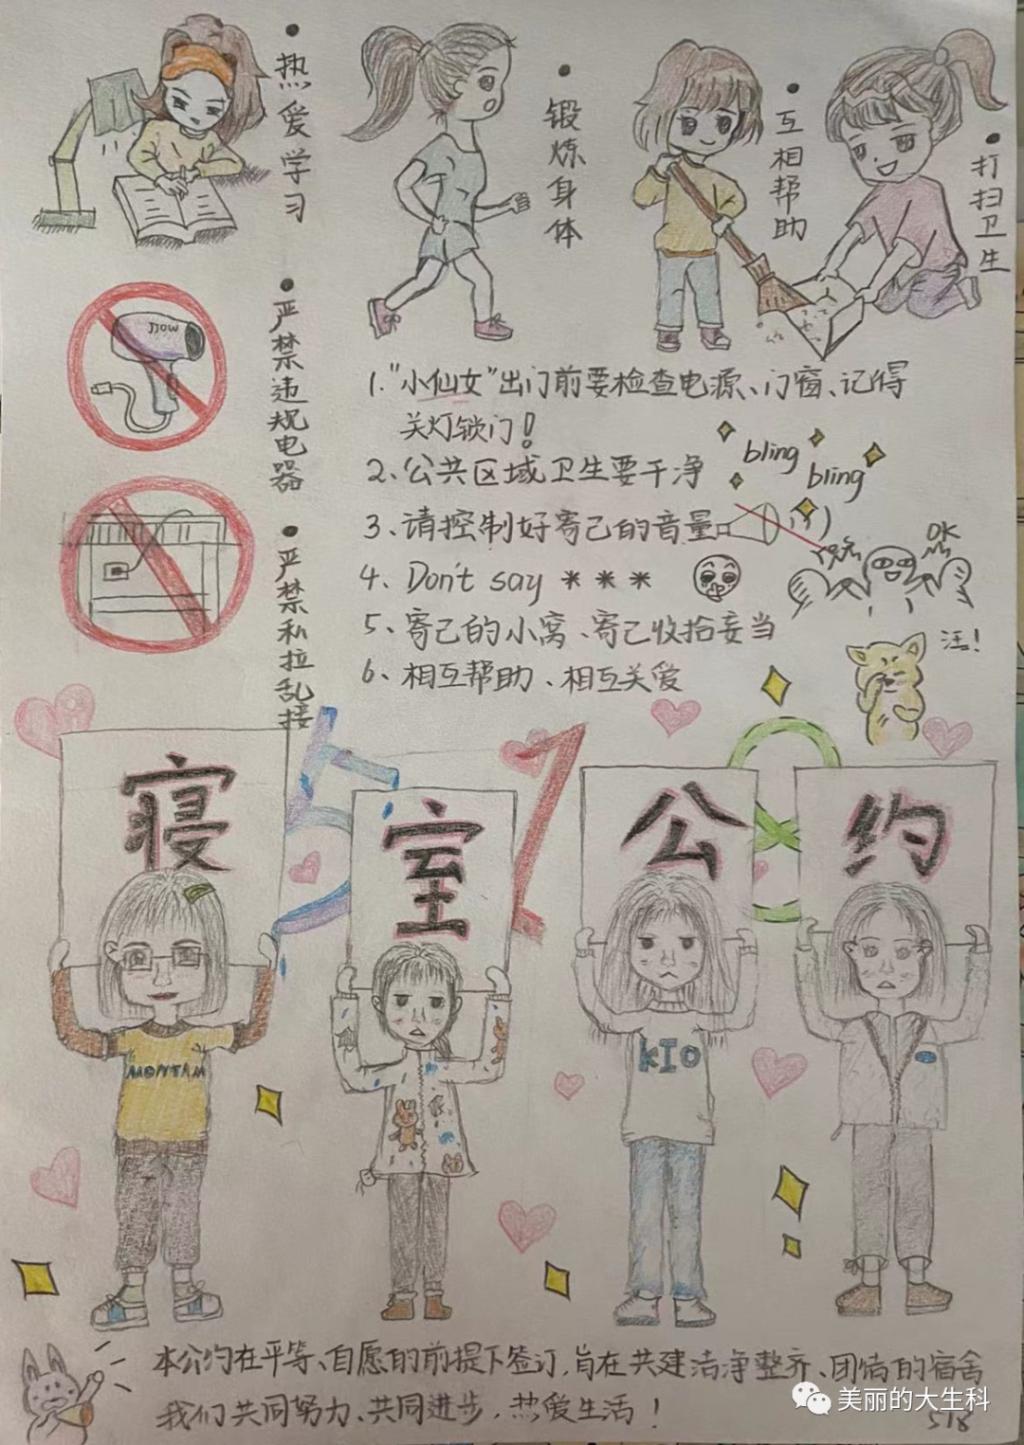 热爱学习
锻炼身体
互相帮助
打扫卫生
严禁违规电器
严禁私拉乱接
1."小仙女"出门前要检查电源、门窗、记得
关灯锁门!
2、公共区域卫生要干净
bling
bling
3、请控制好寄己的音量
OK
4、Don't say ***
5、寄己的小窝、寄己收拾妥当
汪!
6、相互帮助、相互关爱
518
寝室公约
MONTAM
KIO
本公约在平等、自愿的前提下签订,旨在共建洁净整齐、团结的宿舍
我们共同努力、共同进步,热爱生活!
518
美丽的大生科